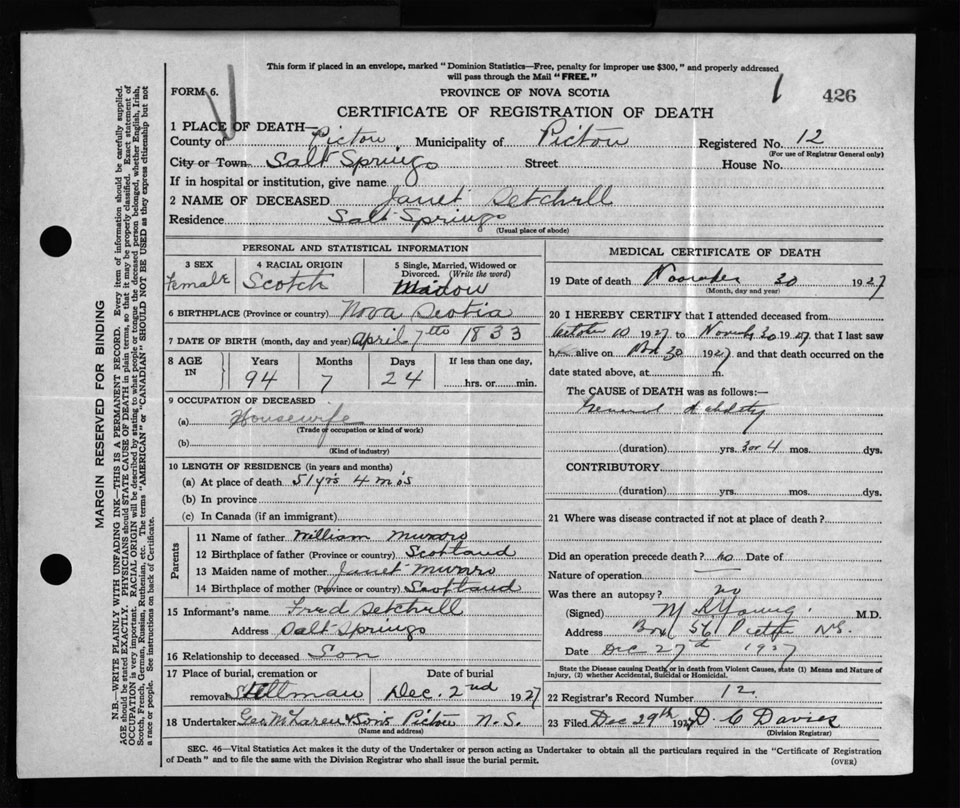 This form if placed in an envelope, marked "Dominion Statistics—Free, penalty for improper use $300," and properly addressed
will pass through the Mail "FREE."
FORM 6.
PROVINCE OF NOVA SCOTIA
1 426
CERTIFICATE OF REGISTRATION OF DEATH
1 PLACE OF DEATH—
County of Pictou Municipality of Pictou Registered No. 12
(For use of Registrar General only)
City or Town Salt Springs Street House No.
If in hospital or institution, give name
2 NAME OF DECEASED Janet Setchell
Residence Salt Springs
(Usual place of abode)
PERSONAL AND STATISTICAL INFORMATION
3 SEX 4 RACIAL ORIGIN 5 Single, Married, Widowed or
Divorced. (Write the word)
Female Scotch Widow
6 BIRTHPLACE (Province or country) Nova Scotia
7 DATE OF BIRTH (month, day and year) April 7th 1833
8 AGE IN Years Months Days If less than one day,
94 7 24 hrs. or min.
9 OCCUPATION OF DECEASED
(a) Housewife
(Trade or occupation or kind of work)
(b)
(Kind of industry)
10 LENGTH OF RESIDENCE (in years and months)
(a) At place of death 51 yrs 4 mo's
(b) In province
(c) In Canada (if an immigrant)
Parents
11 Name of father William Munro
12 Birthplace of father (Province or country) Scotland
13 Maiden name of mother Janet Munro
14 Birthplace of mother (Province or country) Scotland
15 Informant's name Fred Setchell
Address Salt Springs
16 Relationship to deceased Son
17 Place of burial, cremation or Date of burial
removal Stillman Dec. 2nd 1927
18 Undertaker Geo McLaren & Sons Pictou N.S.
(Name and address)
MEDICAL CERTIFICATE OF DEATH
19 Date of death November 30 1927
(Month, day and year)
20 I HEREBY CERTIFY that I attended deceased from
October 10 1927 to Novemb 30 1927 that I last saw
h alive on Nov 30 1927 and that death occurred on the
date stated above, at m.
The CAUSE of DEATH was as follows:—
General debility
(duration) yrs. 3 or 4 mos. dys.
CONTRIBUTORY
(duration) yrs. mos. dys.
21 Where was disease contracted if not at place of death?
Did an operation precede death? no Date of
Nature of operation —
Was there an autopsy? no
(Signed) M R Young M.D.
Address Box 56 Pictou N.S.
Date Dec 27th 1927
State the Disease causing Death, or in death from Violent Causes, state (1) Means and Nature of
Injury, (2) whether Accidental, Suicidal or Homicidal.
22 Registrar's Record Number 12
23 Filed Dec 29th 1927 D. C Davies
(Division Registrar)
SEC. 46—Vital Statistics Act makes it the duty of the Undertaker or person acting as Undertaker to obtain all the particulars required in the "Certificate of Registration
of Death" and to file the same with the Division Registrar who shall issue the burial permit.
(OVER)
MARGIN RESERVED FOR BINDING
N.B.—WRITE PLAINLY WITH UNFADING INK—THIS IS A PERMANENT RECORD. Every item of information should be carefully supplied.
AGE should be stated EXACTLY. PHYSICIANS should STATE CAUSE OF DEATH in plain terms, so that it may be properly classified. Exact statement of
OCCUPATION is very important. RACIAL ORIGIN will be described by stating to what people or tongue the deceased person belonged, whether English, Irish,
Scotch, French, German, Russian, Ruthenian, etc. The terms "AMERICAN" or "CANADIAN" SHOULD NOT BE USED as they express citizenship but not
a race or people. See instructions on back of Certificate.